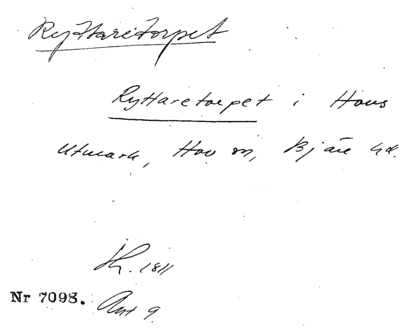 Ryttaretorpet
Ryttaretorpet i Hovs
Utmark, Hov sn, Bjäre hd.
1811
Nr 7098. Ant 9